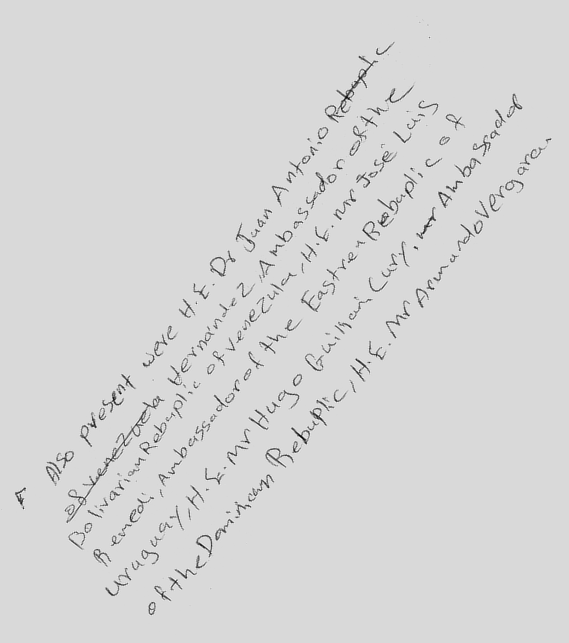 Also present were H.E. Dr Juan Antonio Rebuplic
of venezuela Hernandez, Ambassador of the
Bolivarian Rebuplic of venezula, H.E. mr José Luis
Remedi, Ambassador of the Eastren Rebuplic of
uruguay, H.E. Mr Hugo Guiliani Cury, mr Ambassador
of the Dominican Rebuplic, H.E. Mr Armando Vergara.